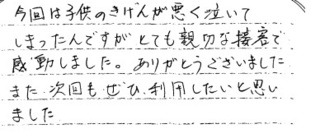 今回は子供のきげんが悪く泣いて
しまったんですがとても親切な接客で
感動しました。ありがとうございました
また、次回もぜひ、利用したいと思い
ました